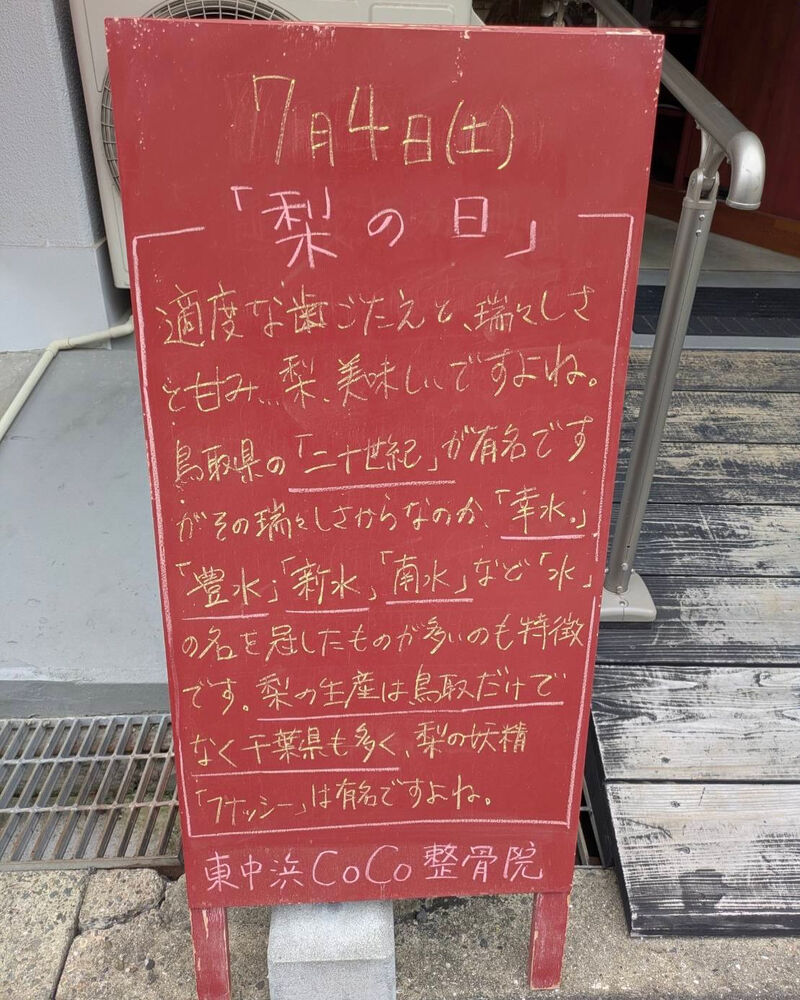 7月4日(土)
「梨の日」
適度な歯ごたえと、瑞々しさ
と甘み…梨、美味しいですよね。
鳥取県の「二十世紀」が有名です
がその瑞々しさからなのか、「幸水」
「豊水」「新水」「南水」など「水」
の名を冠したものが多いのも特徴
です。梨の生産は鳥取だけで
なく千葉県も多く、梨の妖精
「フナッシー」は有名ですよね。
東中浜CoCo整骨院